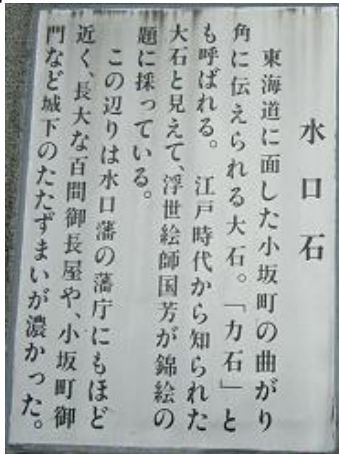 水口石
東海道に面した小坂町の曲がり
角に伝えられる大石。「力石」と
も呼ばれる。江戸時代から知られた
大石と見えて、浮世絵師国芳が錦絵の
題に採っている。
この辺りは水口藩の藩庁にもほど
近く、長大な百間御長屋や、小坂町御
門など城下のたたずまいが濃かった。